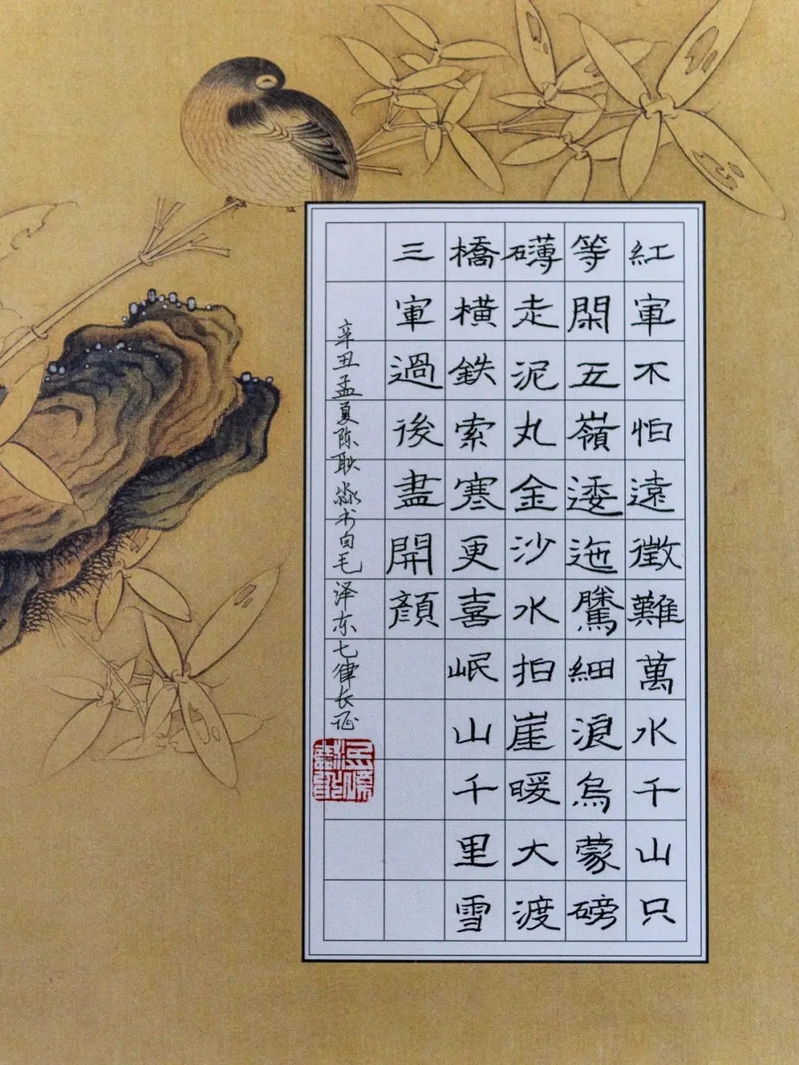 紅軍不怕遠徵難萬水千山只
等閑五嶺逶迤騰細浪烏蒙磅
礴走泥丸金沙水拍崖暖大渡
橋橫鉄索寒更喜岷山千里雪
三軍過後盡開顔
辛丑孟夏陈耿淼书自毛泽东七律长征